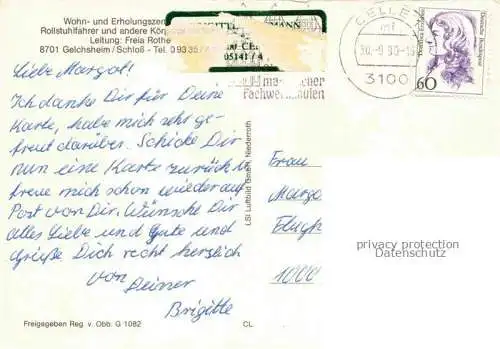 Wohn- und Erholungszen
Rollstuhlfahrer und andere Kör
Leitung: Freia Rothe
8701 Gelchsheim/Schloß - Tel. 09335/
05141/4
CELLE
-9.90-
3100
Fachwerkhäusern
60
Deutsche Bundespost
Liebe Margot!
Ich danke Dir für Deine
Karte, habe mich sehr ge-
freut darüber. Schicke Dir
nun eine Karte zurück u.
freue mich schon wieder auf
Post von Dir. Wünsche Dir
alles Liebe und Gute und
grüße Dich recht herzlich
von
Deiner
Brigitte
LSI Luftbild GmbH, Niederroth
Frau
Margo
1000
privacy protection
Datenschutz
Freigegeben Reg. v. Obb. G 1082
CL.